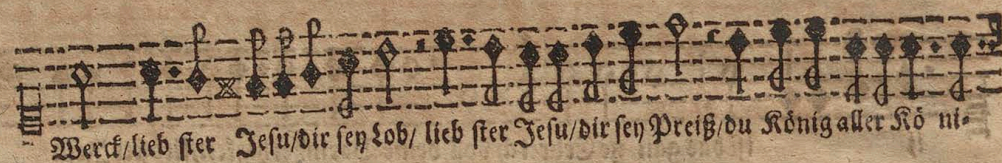 Werck/lieb ſter Jeſu/dir ſey Lob/ lieb ſter Jeſu/dir ſey Preiß/du König aller Kö ni-